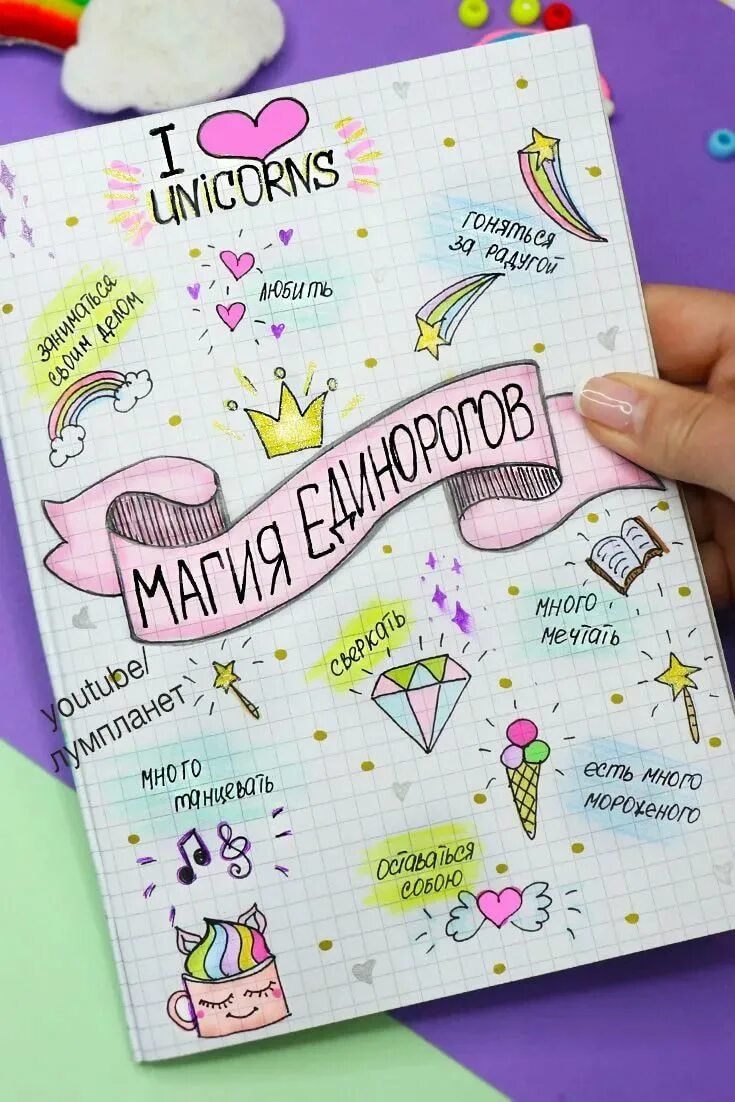 I
UNICORNS
гоняться
за радугой
любить
заниматься
своим делом
МАГИЯ ЕДИНОРОГОВ
сверкать
много
мечтать
youtube/
лумпланет
много
танцевать
есть много
мороженого
оставаться
собою